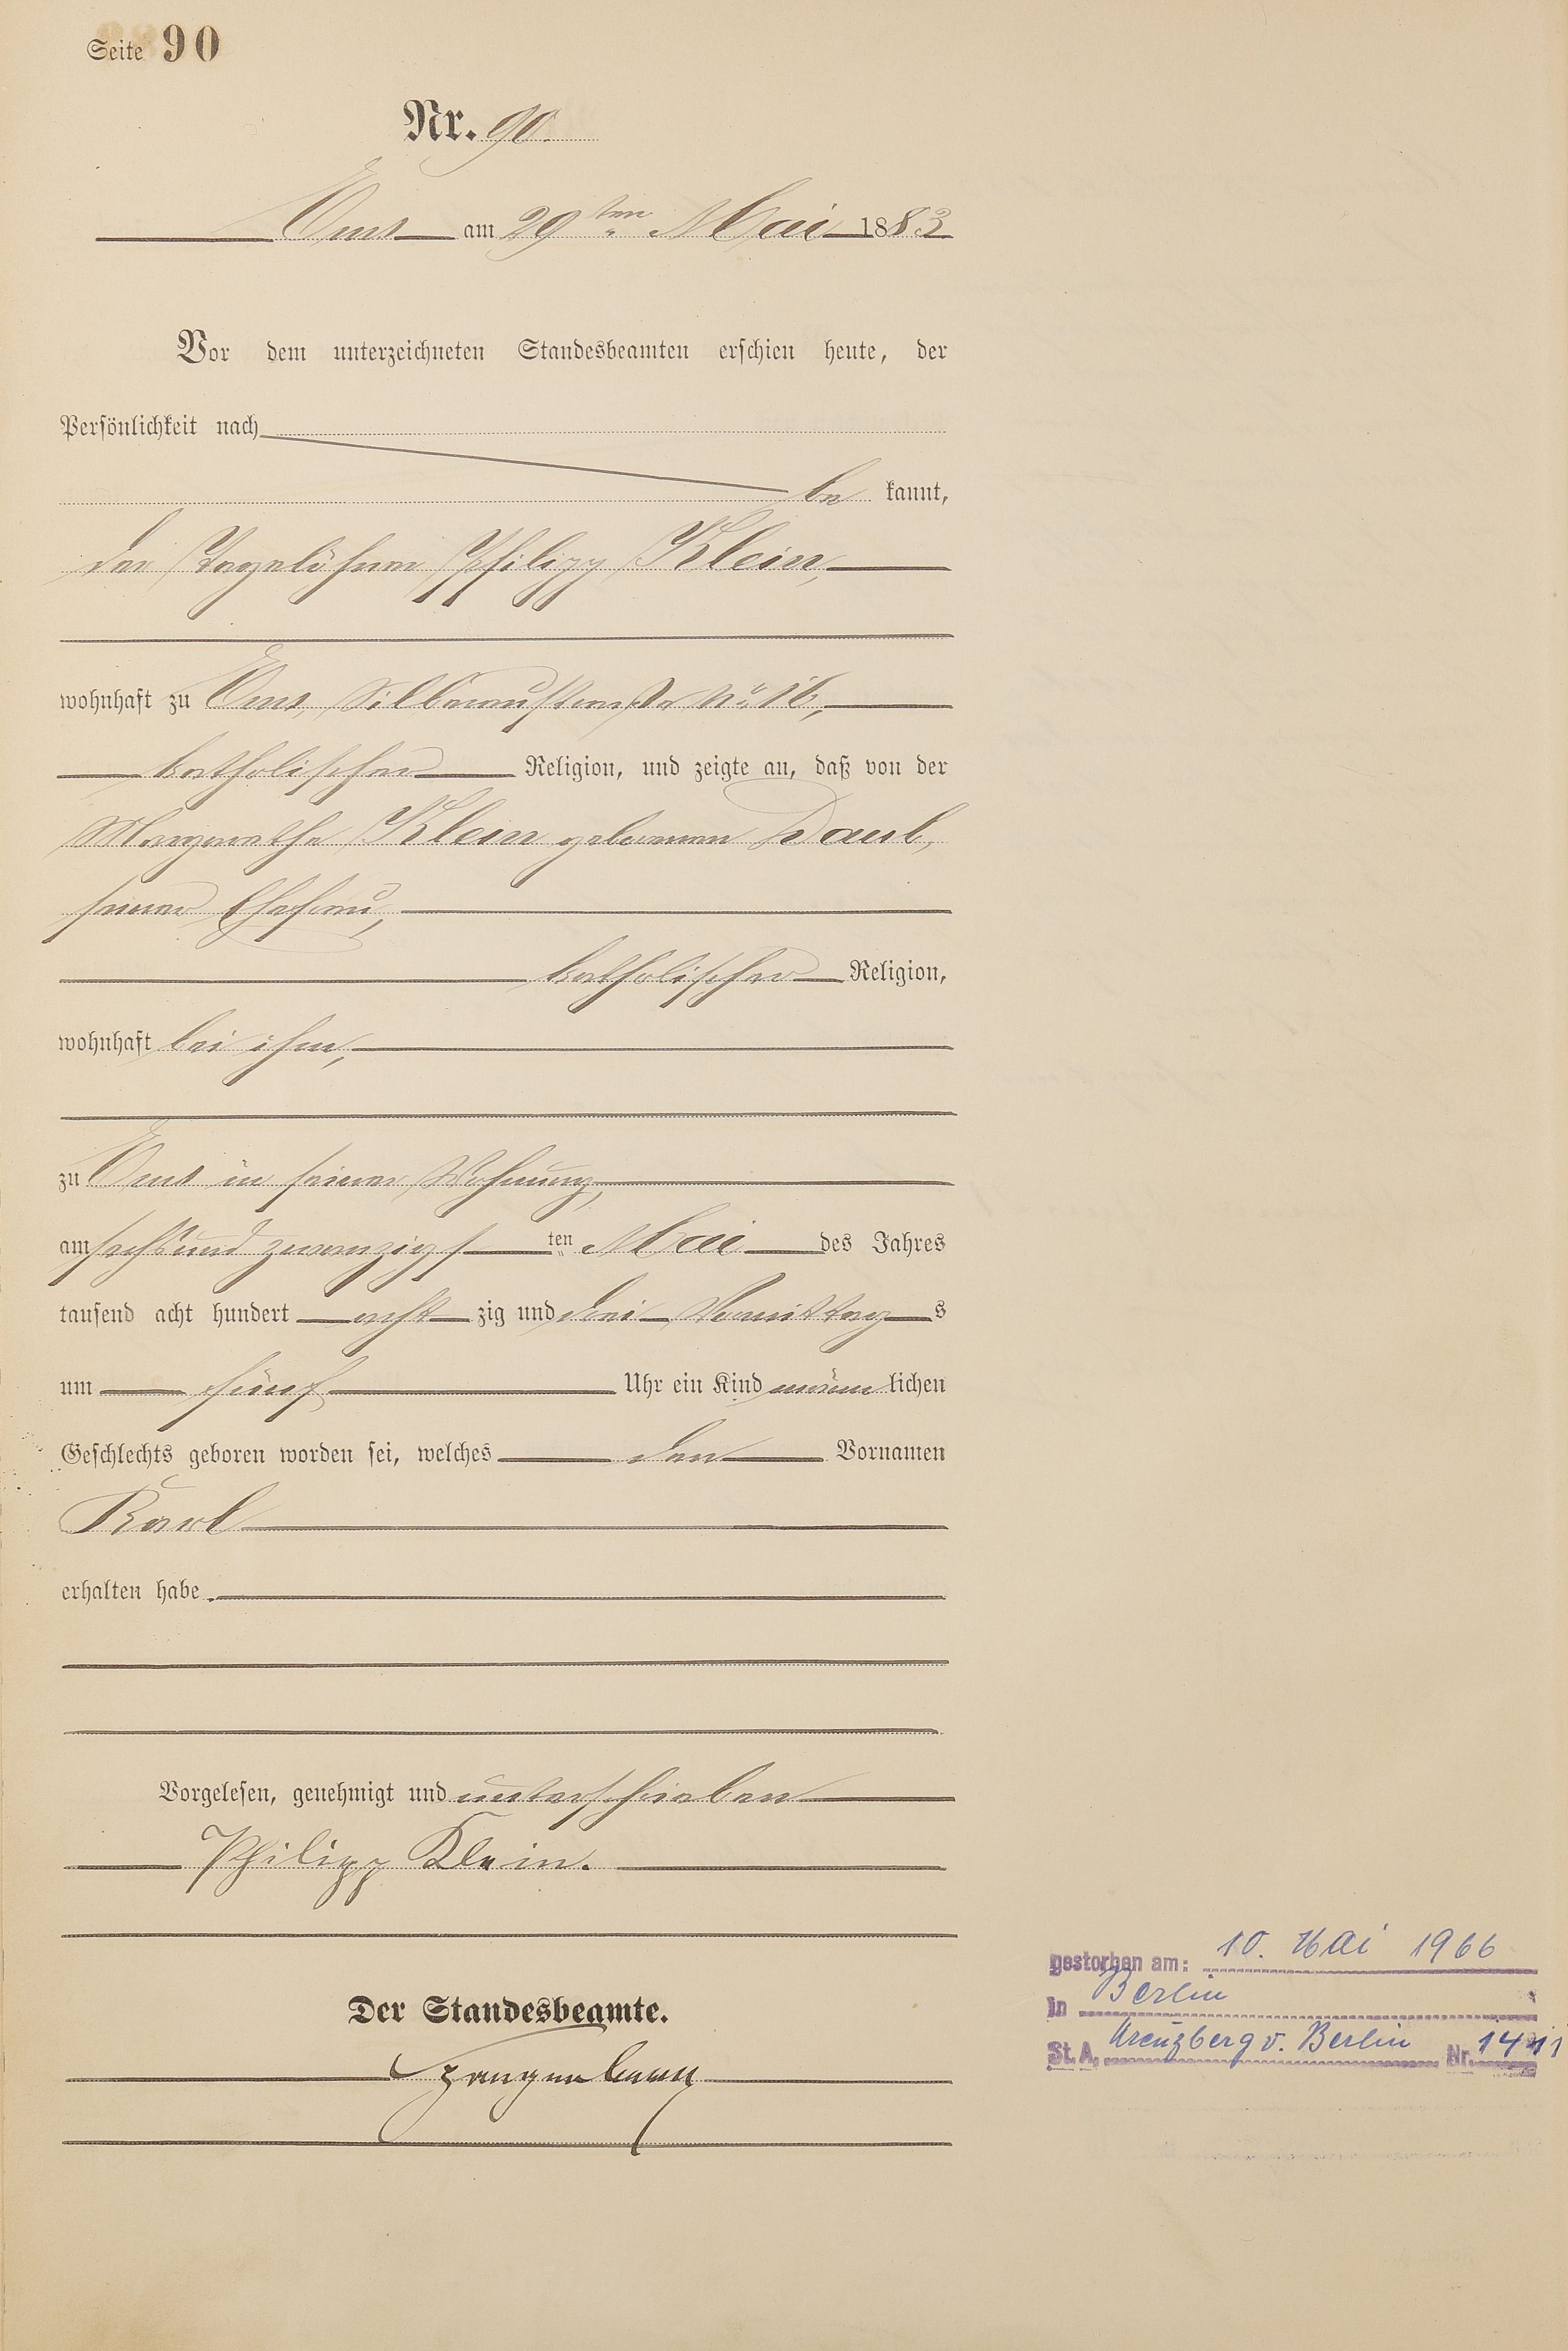 Seite 90
Nr. 90.
Ems am 29ten Mai 1883
Vor dem unterzeichneten Standesbeamten erschien heute, der
Persönlichkeit nach
be kannt,
der Tagelöhner Philipp Klein,
wohnhaft zu Ems, Silberaustraße No 16,
katholischer Religion, und zeigte an, daß von der
Margarethe Klein geborenen Daub,
seiner Ehefrau,
katholischer Religion,
wohnhaft bei ihm,
zu Ems in seiner Wohnung,
am sechsundzwanzigsten Mai des Jahres
tausend acht hundert achtzig und drei Vormittags
um fünf Uhr ein Kind männlichen
Geschlechts geboren worden sei, welches den Vornamen
Karl
erhalten habe.
Vorgelesen, genehmigt und unterschrieben
Philipp Klein.
Der Standesbeamte.
gestorben am: 10. Mai 1966
in Berlin
St. A. Kreuzberg v. Berlin Nr.